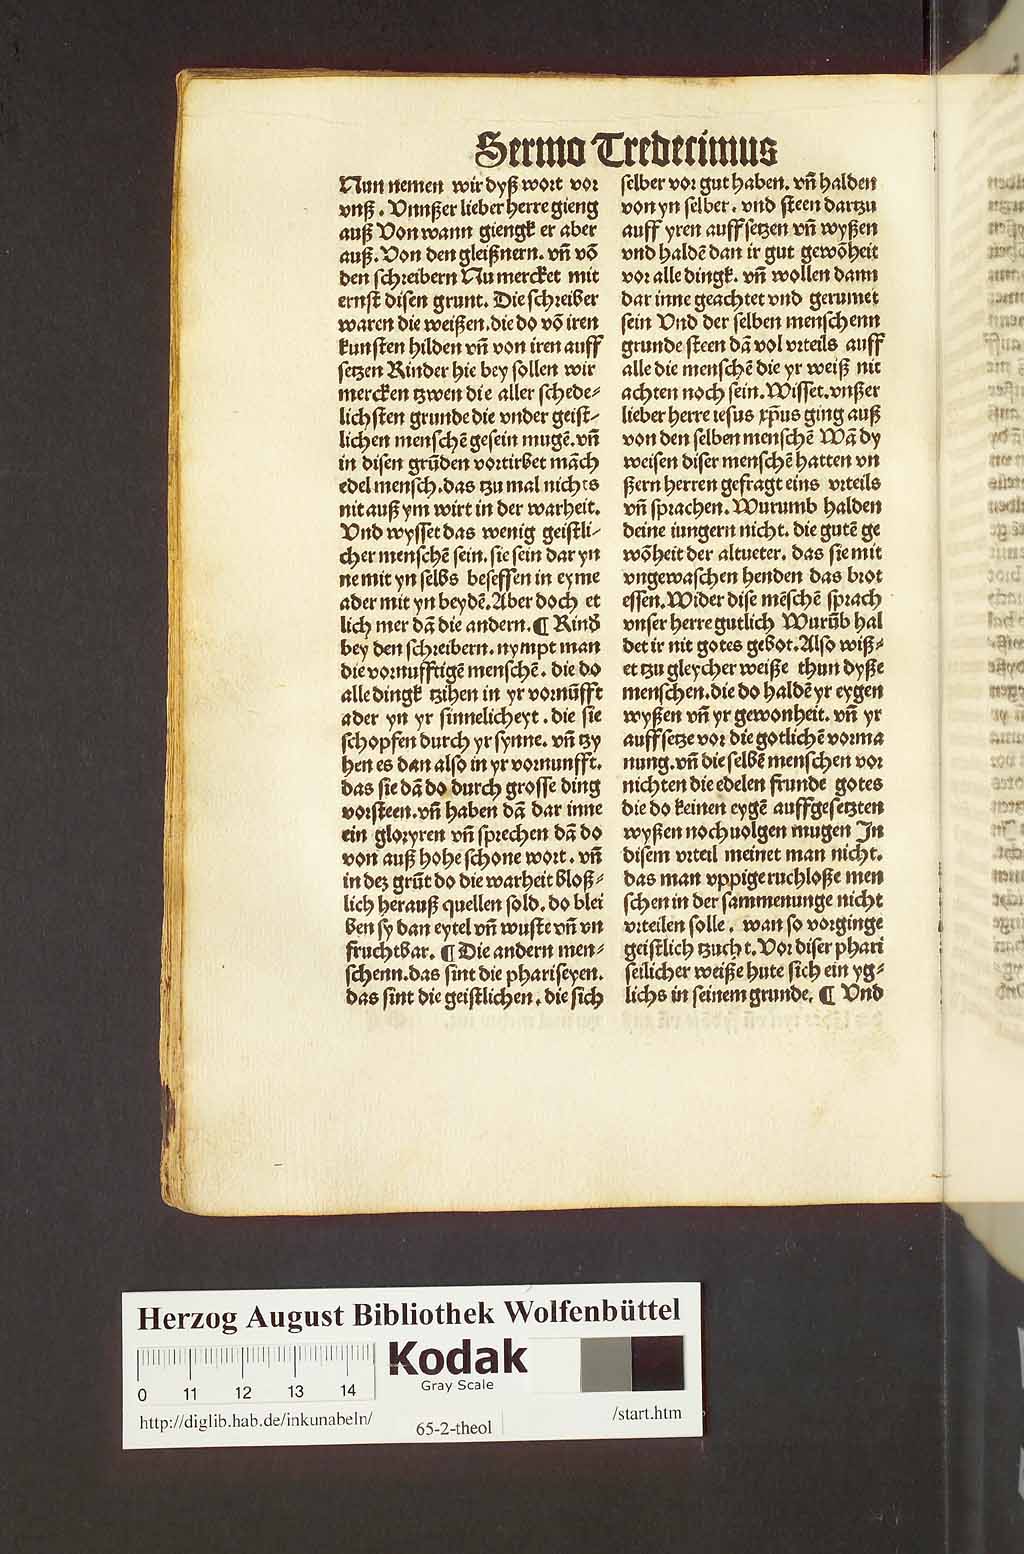 Sermo Tredecimus
Nun nemen wir dyß wort vor
vnß. Vnnßer lieber herre gieng
auß Von wann giengk er aber
auß. Von den gleißnern. vn̄ vō
den schreibern Nu mercket mit
ernst disen grunt. Die schreiber
waren die weißen. die do vō iren
kunsten hilden vn̄ von iren auff
setzen Rinder hie bey sollen wir
mercken tzwen die aller schede⸗
lichsten grunde die vnder geist⸗
lichen menschē gesein mugē. vn̄
in disen grūden vortirbet māch
edel mensch. das tzu mal nichts
nit auß ym wirt in der warheit.
Vnd wysset das wenig geistli⸗
cher menschē sein. sie sein dar yn
ne mit yn selbs besessen in eyme
ader mit yn beydē. Aber doch et
lich mer dā die andern. ¶ Rind
bey den schreibern. nympt man
die vornufftigē menschē. die do
alle dingk tzihen in yr vornūfft
ader yn yr sinnelicheyt. die sie
schopfen durch yr synne. vn̄ tzy
hen es dan also in yr vornunfft.
das sie dā do durch grosse ding
vorsteen. vn̄ haben dā dar inne
ein gloryren vn̄ sprechen dā do
von auß hohe schone wort. vn̄
in dez grūt do die warheit bloß⸗
lich herauß quellen sold. do blei
ben sy dan eytel vn̄ wuste vn̄ vn
fruchtbar. ¶ Die andern men⸗
schenn. das sint die phariseyen.
das sint die geistlichen. die sich
selber vor gut haben. vn̄ halden
von yn selber. vnd steen dartzu
auff yren auff setzen vn̄ wyßen
vnd haldē dan ir gut gewōheit
vor alle dingk. vn̄ wollen dann
dar inne geachtet vnd gerumet
sein Vnd der selben menschenn
grunde steen dā vol vrteils auff
alle die menschē die yr weiß nit
achten noch sein. Wisset. vnßer
lieber herre iesus xp̄us ging auß
von den selben menschē Wā dy
weisen diser menschē hatten vn
ßern herren gefragt eins vrteils
vn̄ sprachen. Wurumb halden
deine iungern nicht. die gutē ge
wōheit der altueter. das sie mit
vngewaschen henden das brot
essen. Wider dise mēschē sprach
vnser herre gutlich Wurūb hal
det ir nit gotes gebot. Also wiß⸗
et tzu gleycher weiße thun dyße
menschen. die do haldē yr eygen
wyßen vn̄ yr gewonheit. vn̄ yr
auff setze vor die gotlichē vorma
nung. vn̄ die selbē menschen vor
nichten die edelen frunde gotes
die do keinen eygē auffgesetzten
wyßen noch uolgen mugen In
disem vrteil meinet man nicht.
das man vppige ruchloße men
schen in der sammenunge nicht
vrteilen solle. wan so vorginge
geistlich tzucht. Vor diser phari
seilicher weiße hute sich ein yg⸗
lichs in seinem grunde. ¶ Vnd
Herzog August Bibliothek Wolfenbüttel
Kodak
Gray Scale
0 11 12 13 14
http://diglib.hab.de/inkunabeln/
65-2-theol
/start.htm